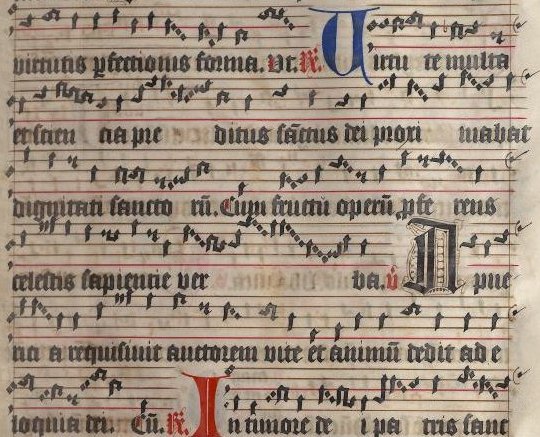 virtutis ꝑfectionis forma. Vt. R̃. Uirtu te multa
et scien cia pre ditus sãctus dei priori mabat
dignitati sancto rũ. Cum fructu operũ ꝓfe rens
celestis sapientie ver ba. v̊ A pue
ricia requisiuit auctorem vite et animũ dedit ad e
loquia dei. Cũ. R̃. In timore de i pa tris sanc